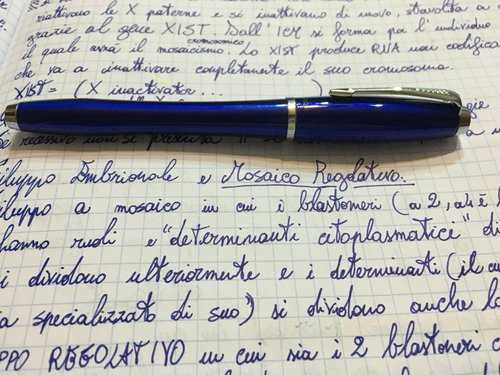 riattivano le X paterne e si inattivano di nuovo, stavolta a
grazie al gene XIST. Dall'ICM si forma poi l'individuo
il quale avrà il mosaicismo cromosomico. Lo XIST produce RNA non codifica
che va a inattivare completamente il suo cromosoma.
XIST = (X inactivator ...
recessivo non si presenta
iluppo Embrionale e Mosaico Regolativo.
iluppo a mosaico in cui i blastomeri (a 2, a 4
hanno ruoli e "determinanti citoplasmatice" di
i dividono ulteriormente e i determinanti (il cu
a specializzato di suo) si dividono anche l
PPO REGOLATIVO in cui sia i 2 blastomeri c